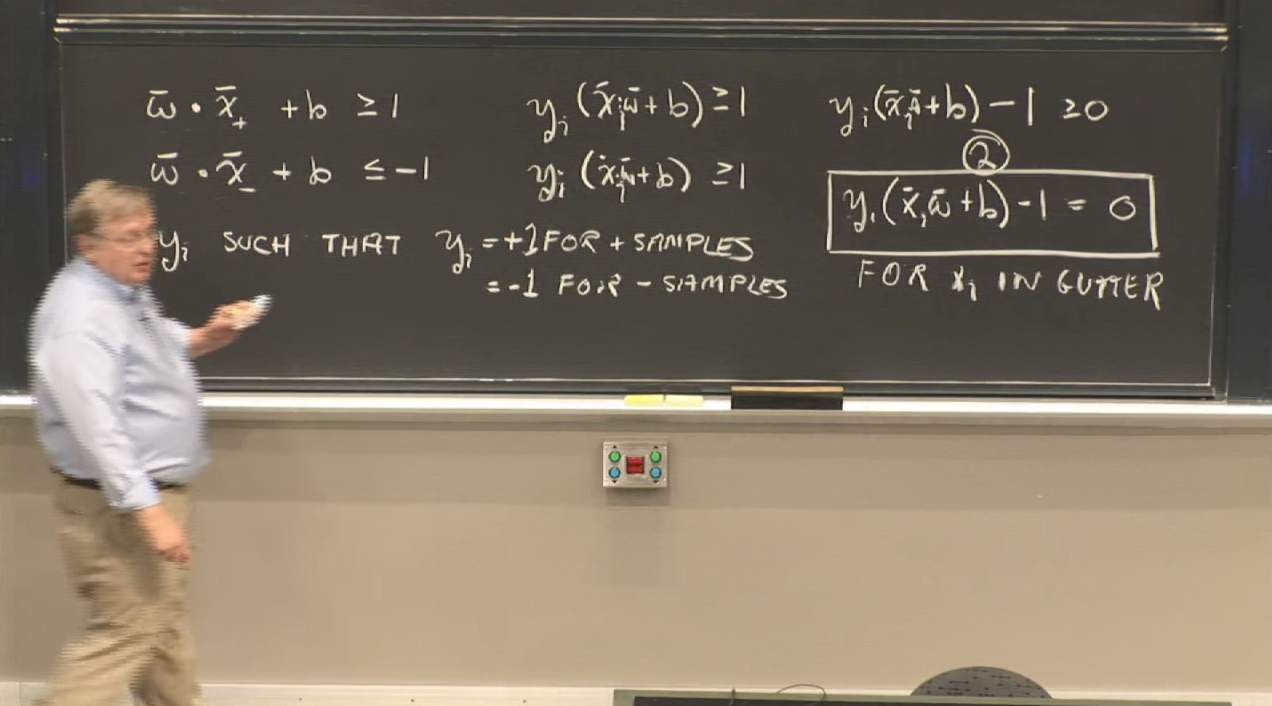 w̄ · x̄₊ + b ≥ 1
w̄ · x̄₋ + b ≤ -1
yᵢ SUCH THAT yᵢ = +1 FOR + SAMPLES
= -1 FOR - SAMPLES
yᵢ (x̄ᵢ w̄ + b) ≥ 1
yᵢ (x̄ᵢ w̄ + b) ≥ 1
yᵢ (x̄ᵢ w̄ + b) - 1 ≥ 0
②
yᵢ (x̄ᵢ w̄ + b) - 1 = 0
FOR xᵢ IN GUTTER